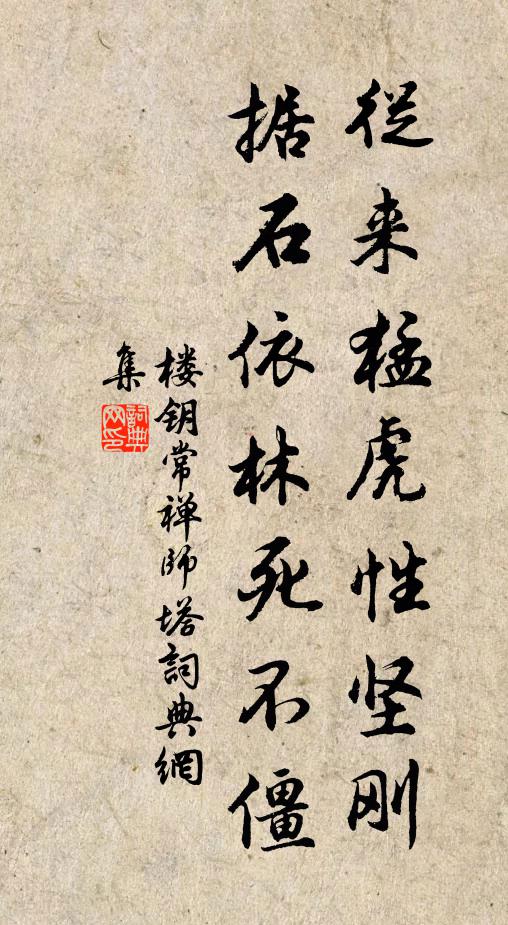 從来猛虎性坚刚
据石依林死不僵
楼钥常禅师塔詞典網
集
詞典网印